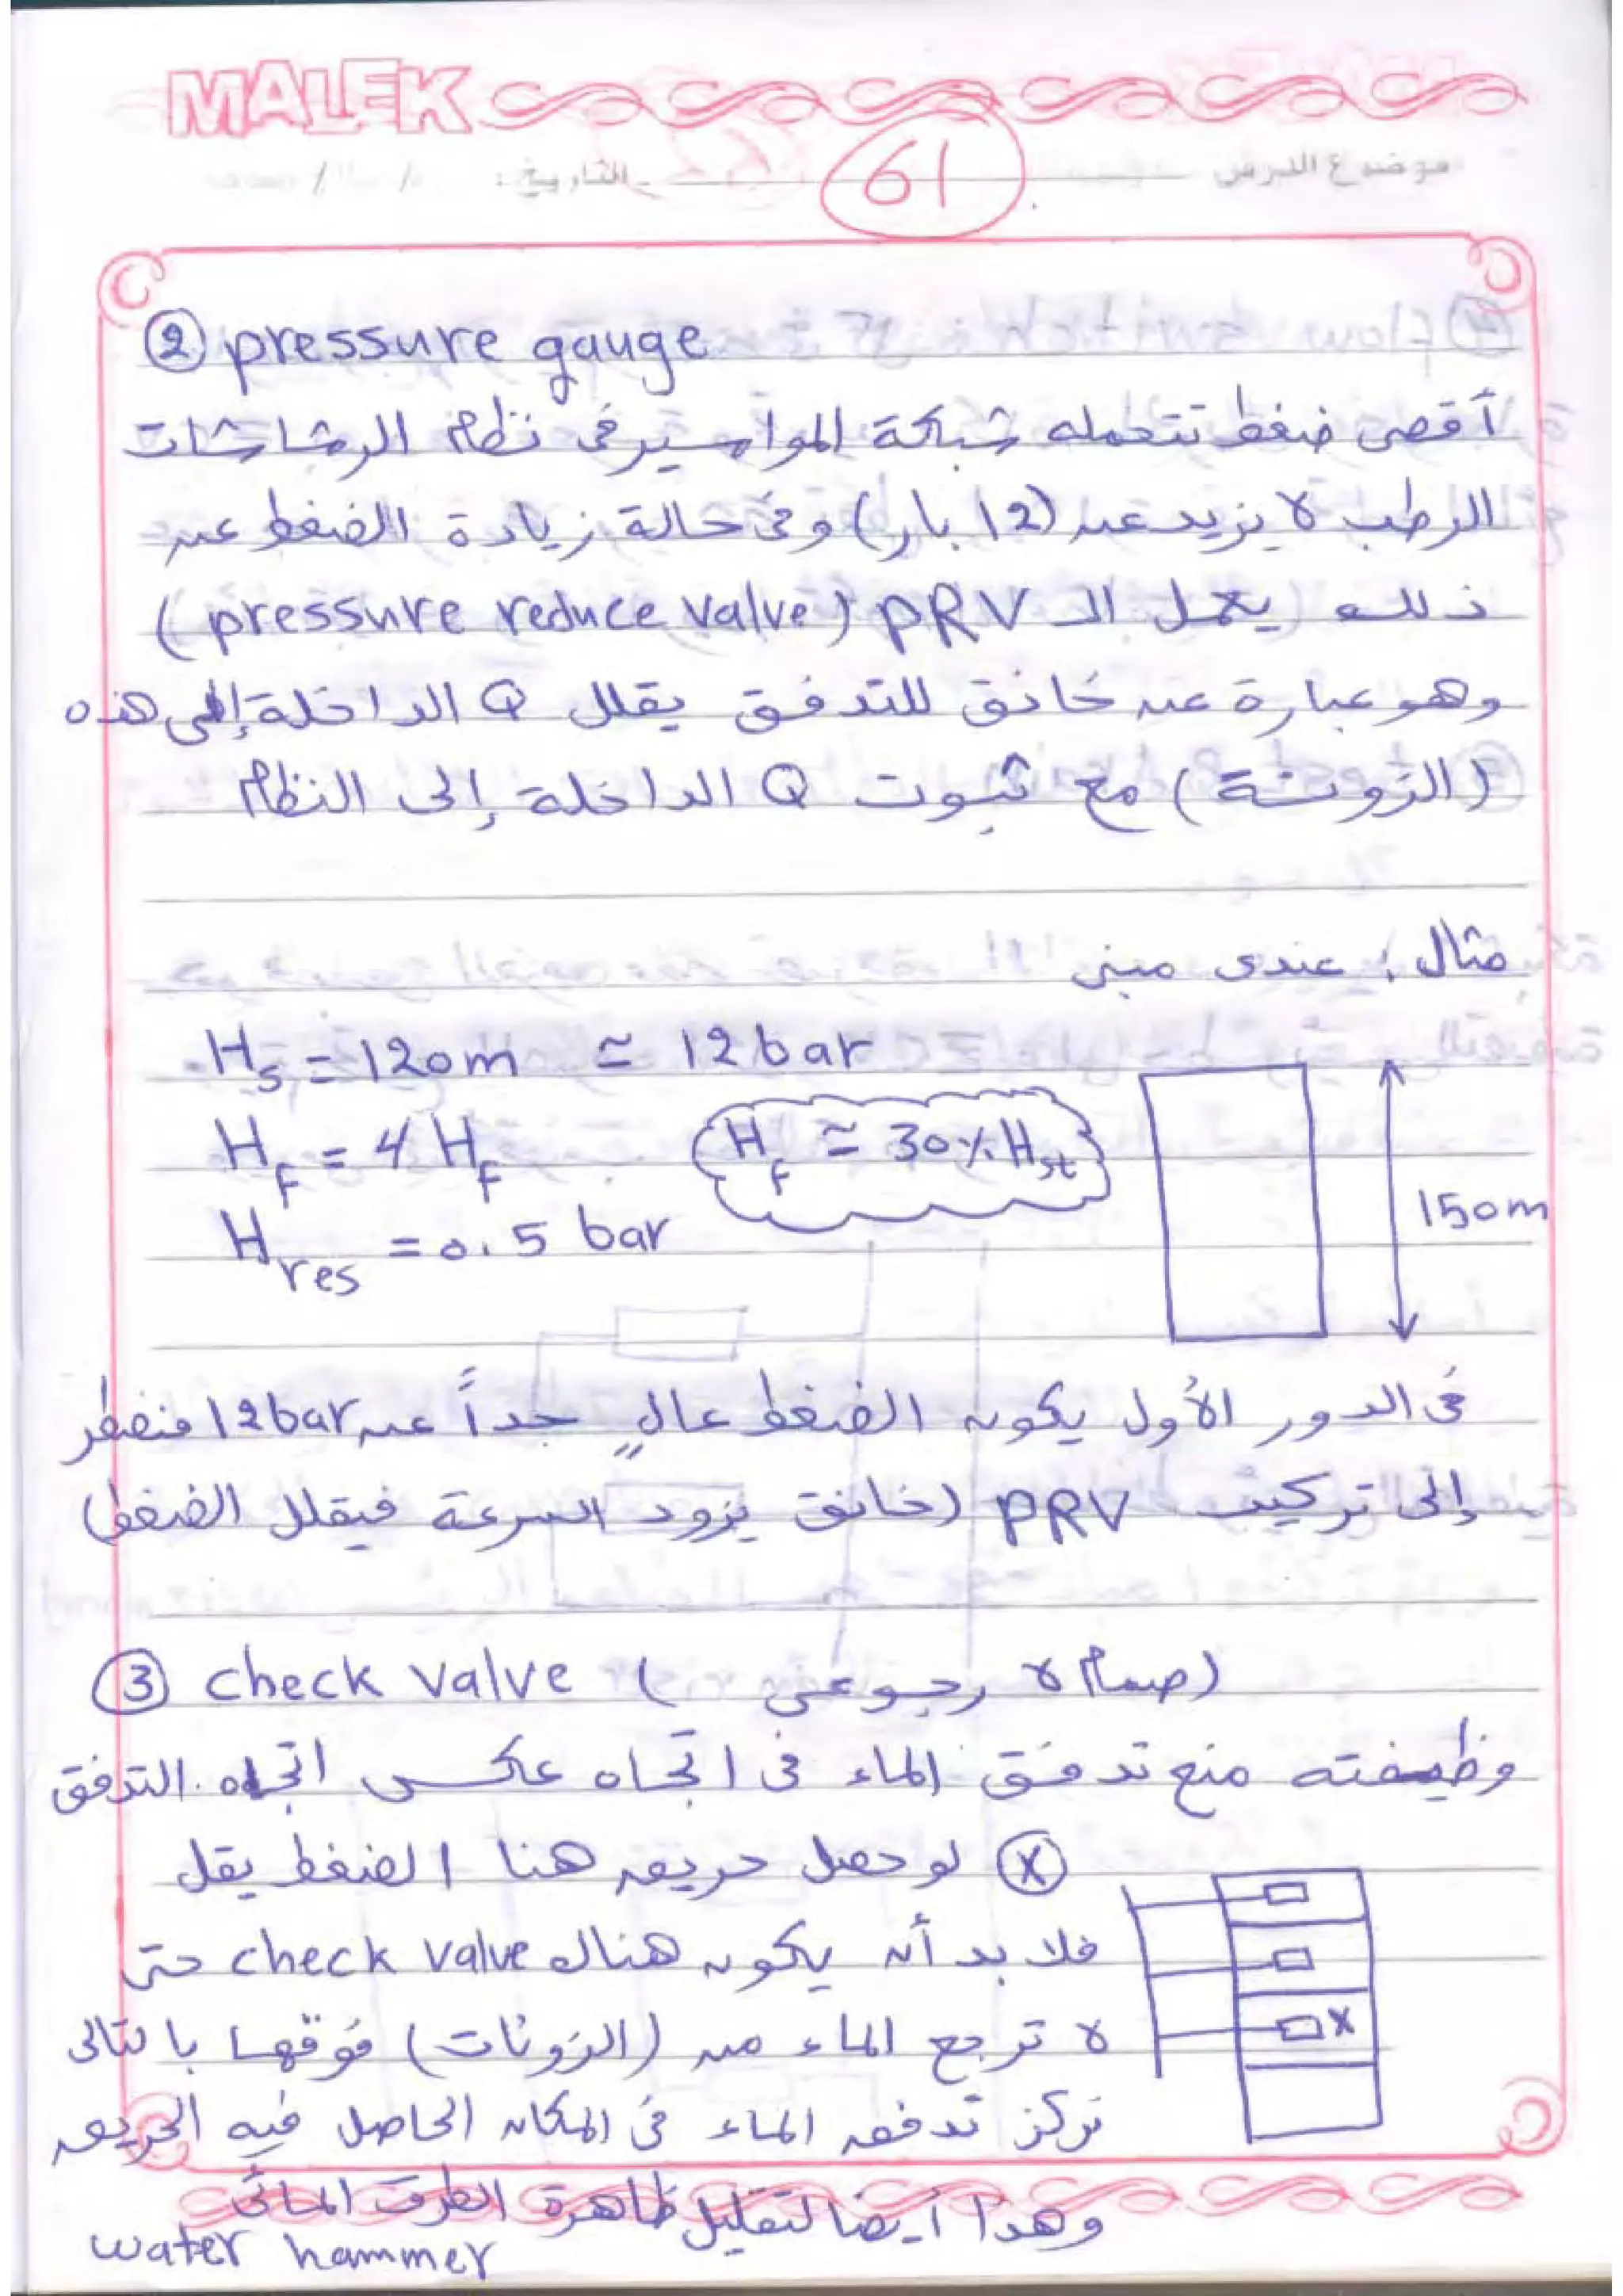 MALEK
موضوع الدرس
التاريخ: / /
61
② pressure gauge
أقصى ضغط تتحمله شبكة المواسير فى نظام الرشاشات
الرطب لا يزيد عن (12 بار) وفى حالة زيادة الضغط عن
ذلك يعمل الـ PRV (pressure reduce valve)
وهو عبارة عن خانق للتدفق يقلل Q الداخلة إلى هذه
(الزونة) مع ثبوت Q الداخلة إلى النظام
مثال: عندى مبنى
Hs = 120m ≃ 12 bar
HF = 4 HF
HF ≃ 30% Hst
Hres = 0.5 bar
150m
فى الدور الأول يكون الضغط عالٍ جداً عن 12bar فنضطر
إلى تركيب PRV (خانق يزود السرعة فيقلل الضغط)
③ check valve (صمام لا رجوعى)
وظيفته منع تدفق الماء فى اتجاه عكس اتجاه التدفق
Ⓧ لو حصل حريق هنا الضغط يقل
فلا بد أن يكون هناك check valve حتى
لا ترجع الماء من (الزونات) فوقها بالتالى
نركز تدفق الماء فى المكان الحاصل فيه الحريق
X
وهذا أيضا لتقليل ظاهرة الطرق المائى
water hammer